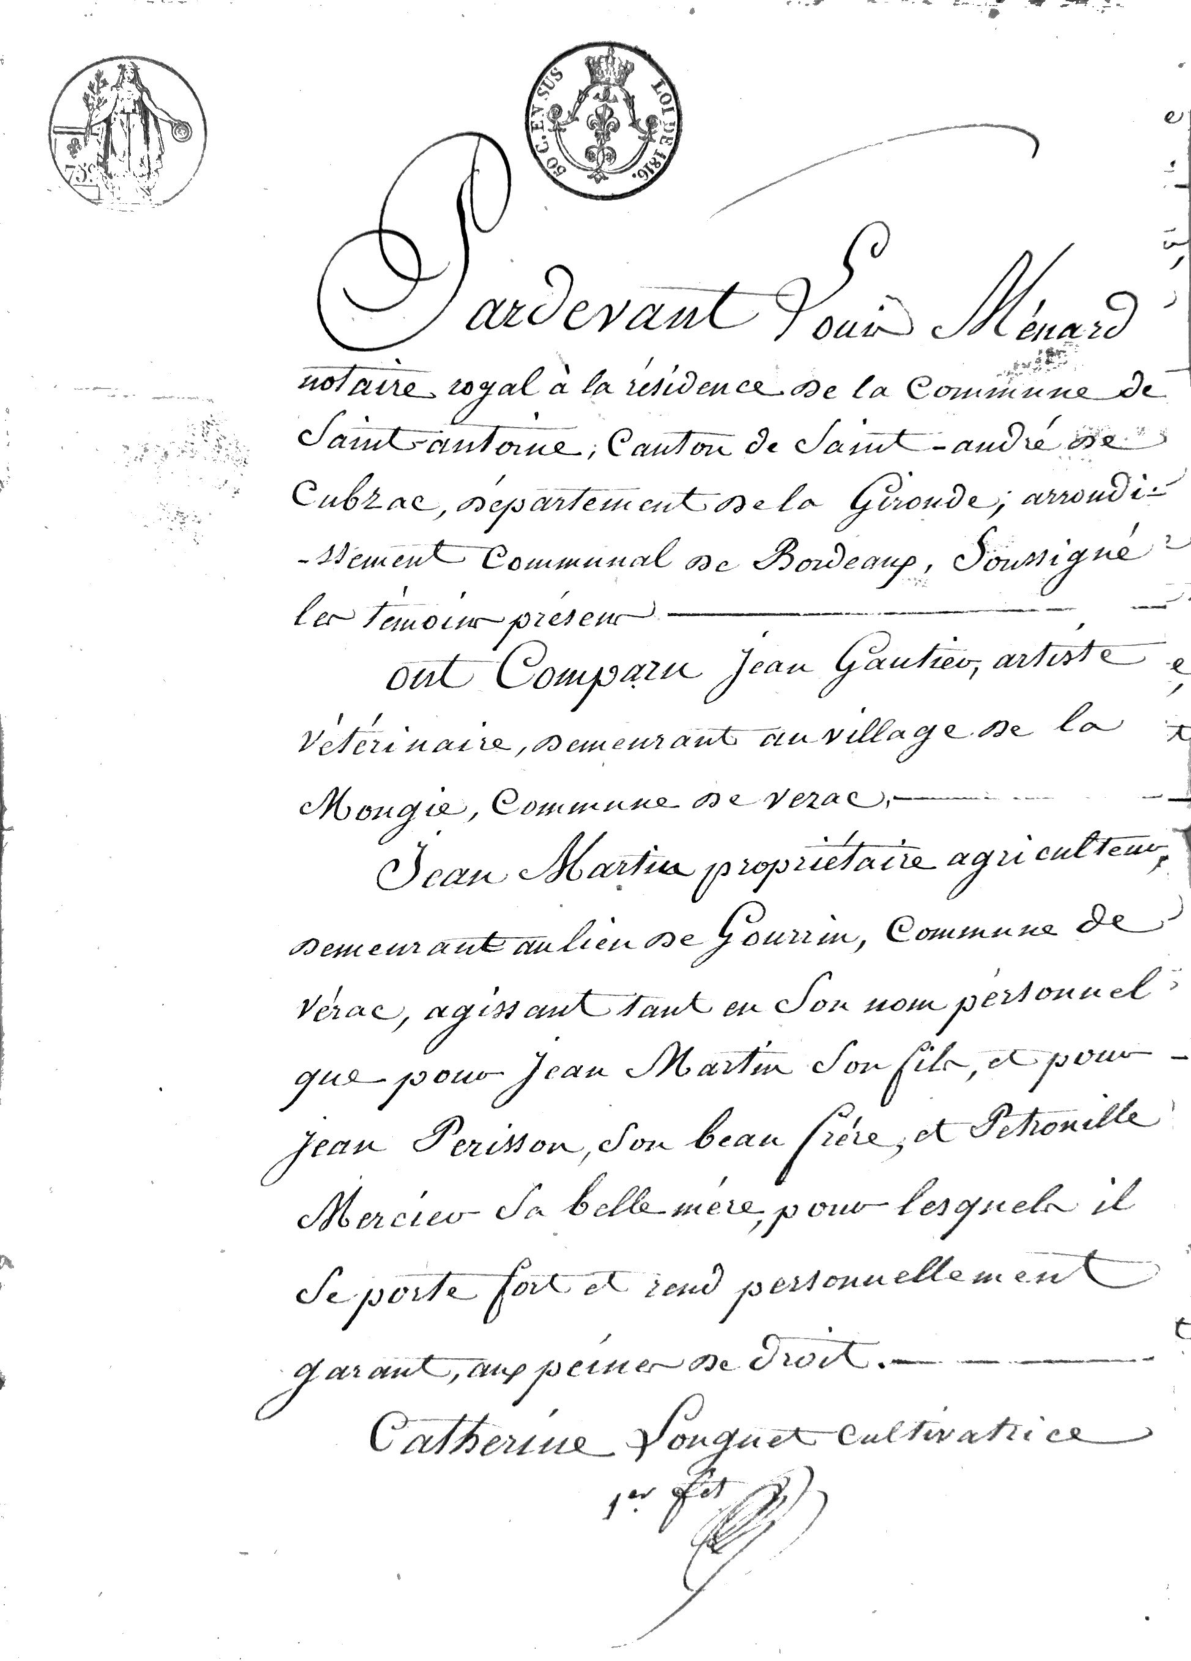 50 C. EN SUS LOI DE 1816.
75c
Pardevant Louis Ménard
notaire royal à la résidence de la Commune de
Saint-antoine, Canton de Saint-andré de
Cubzac, département de la Gironde, arrondi-
-ssement Communal de Bordeaux, Soussigné
les témoins présens
ont Comparu Jean Gautier, artiste
vétérinaire, demeurant au village de la
Mougie, Commune de verac,
Jean Martin propriétaire agriculteur,
demeurant au lieu de Gourrin, Commune de
Vérac, agissant tant en Son nom personnel
que pour Jean Martin Son fils, et pour
Jean Perisson, Son beau frére, et Petronille
Mercier Sa belle mére, pour lesquels il
Se porte fort et rend personnellement
garant, aux peines de droit.
Catherine Longuet Cultivatrice
1er fet